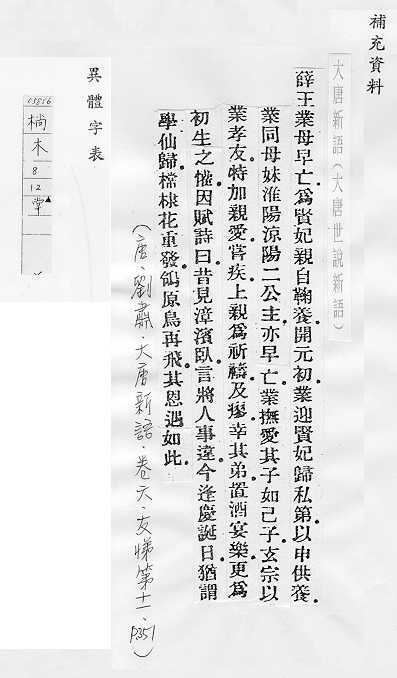 補充資料
大唐新語(大唐世說新語)
薛王業母早亡。爲賢妃親自鞠養。開元初。業迎賢妃歸私第。以申供養。
業同母妹淮陽涼陽二公主亦早亡。業撫愛其子如己子。玄宗以
業孝友。特加親愛。嘗疾。上親爲祈禱。及瘳。幸其弟。置酒宴樂。更爲
初生之懽。因賦詩曰。昔見漳濱臥。言將人事違。今逢慶誕日。猶謂
學仙歸。㭻棣花重發。鴒原鳥再飛。其恩遇如此。
(唐.劉肅.大唐新語.卷六.友悌第十二.P351)
異體字表
03516
㭻
木
8
12
棠▲